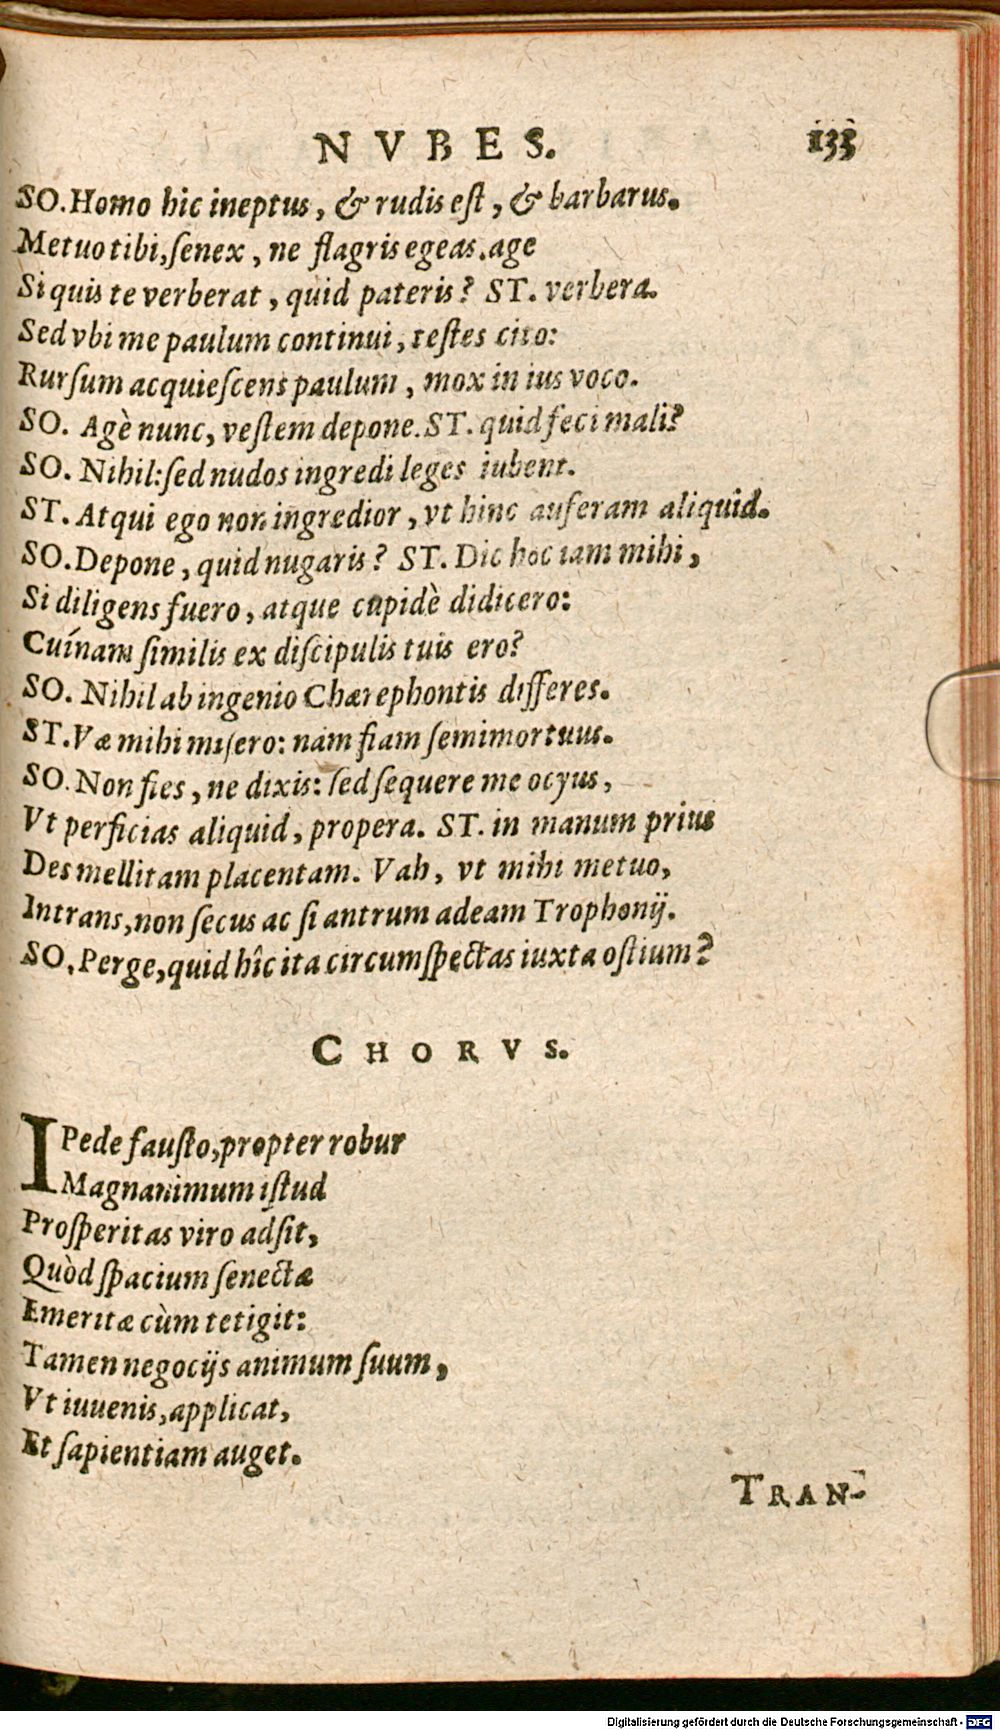 NVBES. 133
SO. Homo hic ineptus, & rudis eſt, & barbarus.
Metuo tibi, ſenex, ne flagris egeas. age
Si quis te verberat, quid pateris? ST. verbera.
Sed vbi me paulum continui, teſtes cito:
Rurſum acquieſcens paulum, mox in ius voco.
SO. Agè nunc, veſtem depone. ST. quid feci mali?
SO. Nihil: ſed nudos ingredi leges iubent.
ST. Atqui ego non ingredior, vt hinc auferam aliquid.
SO. Depone, quid nugaris? ST. Dic hoc iam mihi,
Si diligens fuero, atque cupidè didicero:
Cuínam ſimilis ex diſcipulis tuis ero?
SO. Nihil ab ingenio Chærephontis differes.
ST. Væ mihi miſero: nam fiam ſemimortuus.
SO. Non fies, ne dixis: ſed ſequere me ocyus,
Vt perficias aliquid, propera. ST. in manum prius
Des mellitam placentam. Vah, vt mihi metuo,
Intrans, non ſecus ac ſi antrum adeam Trophonij.
SO. Perge, quid hîc ita circumſpectas iuxta oſtium?
CHORVS.
I Pede fauſto, propter robur
Magnanimum iſtud
Proſperitas viro adſit,
Quòd ſpacium ſenectæ
Emeritæ cùm tetigit:
Tamen negocijs animum ſuum,
Vt iuuenis, applicat,
Et ſapientiam auget.
TRAN-
Digitalisierung gefördert durch die Deutsche Forschungsgemeinschaft - DFG